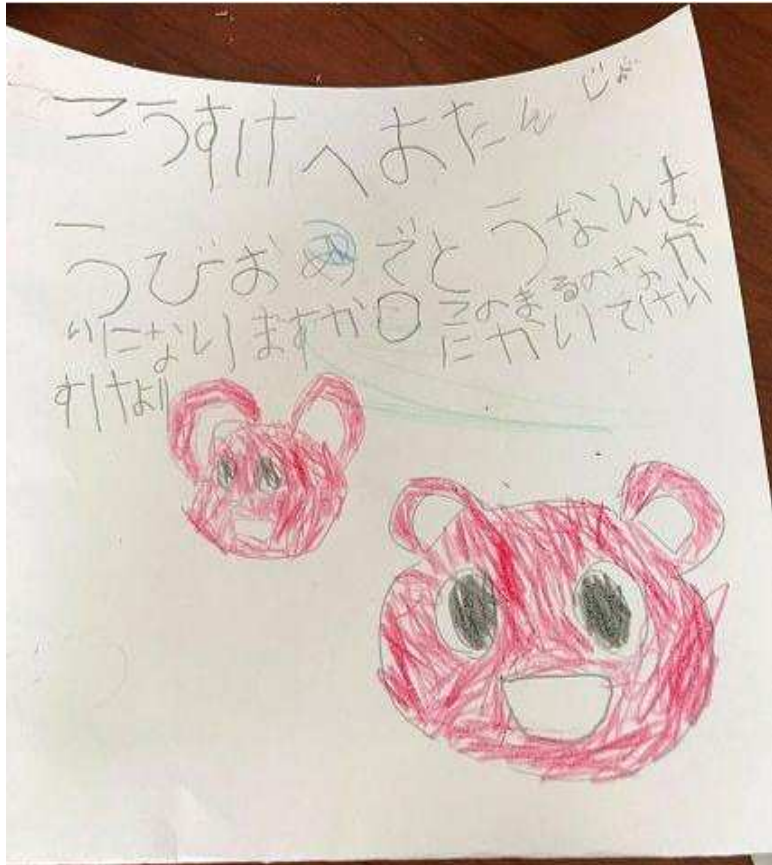 こうすけへ おたんじょ
うびおめでとうなんさ
いになりますか〇 このまるのなか
にかいてけい
すけより